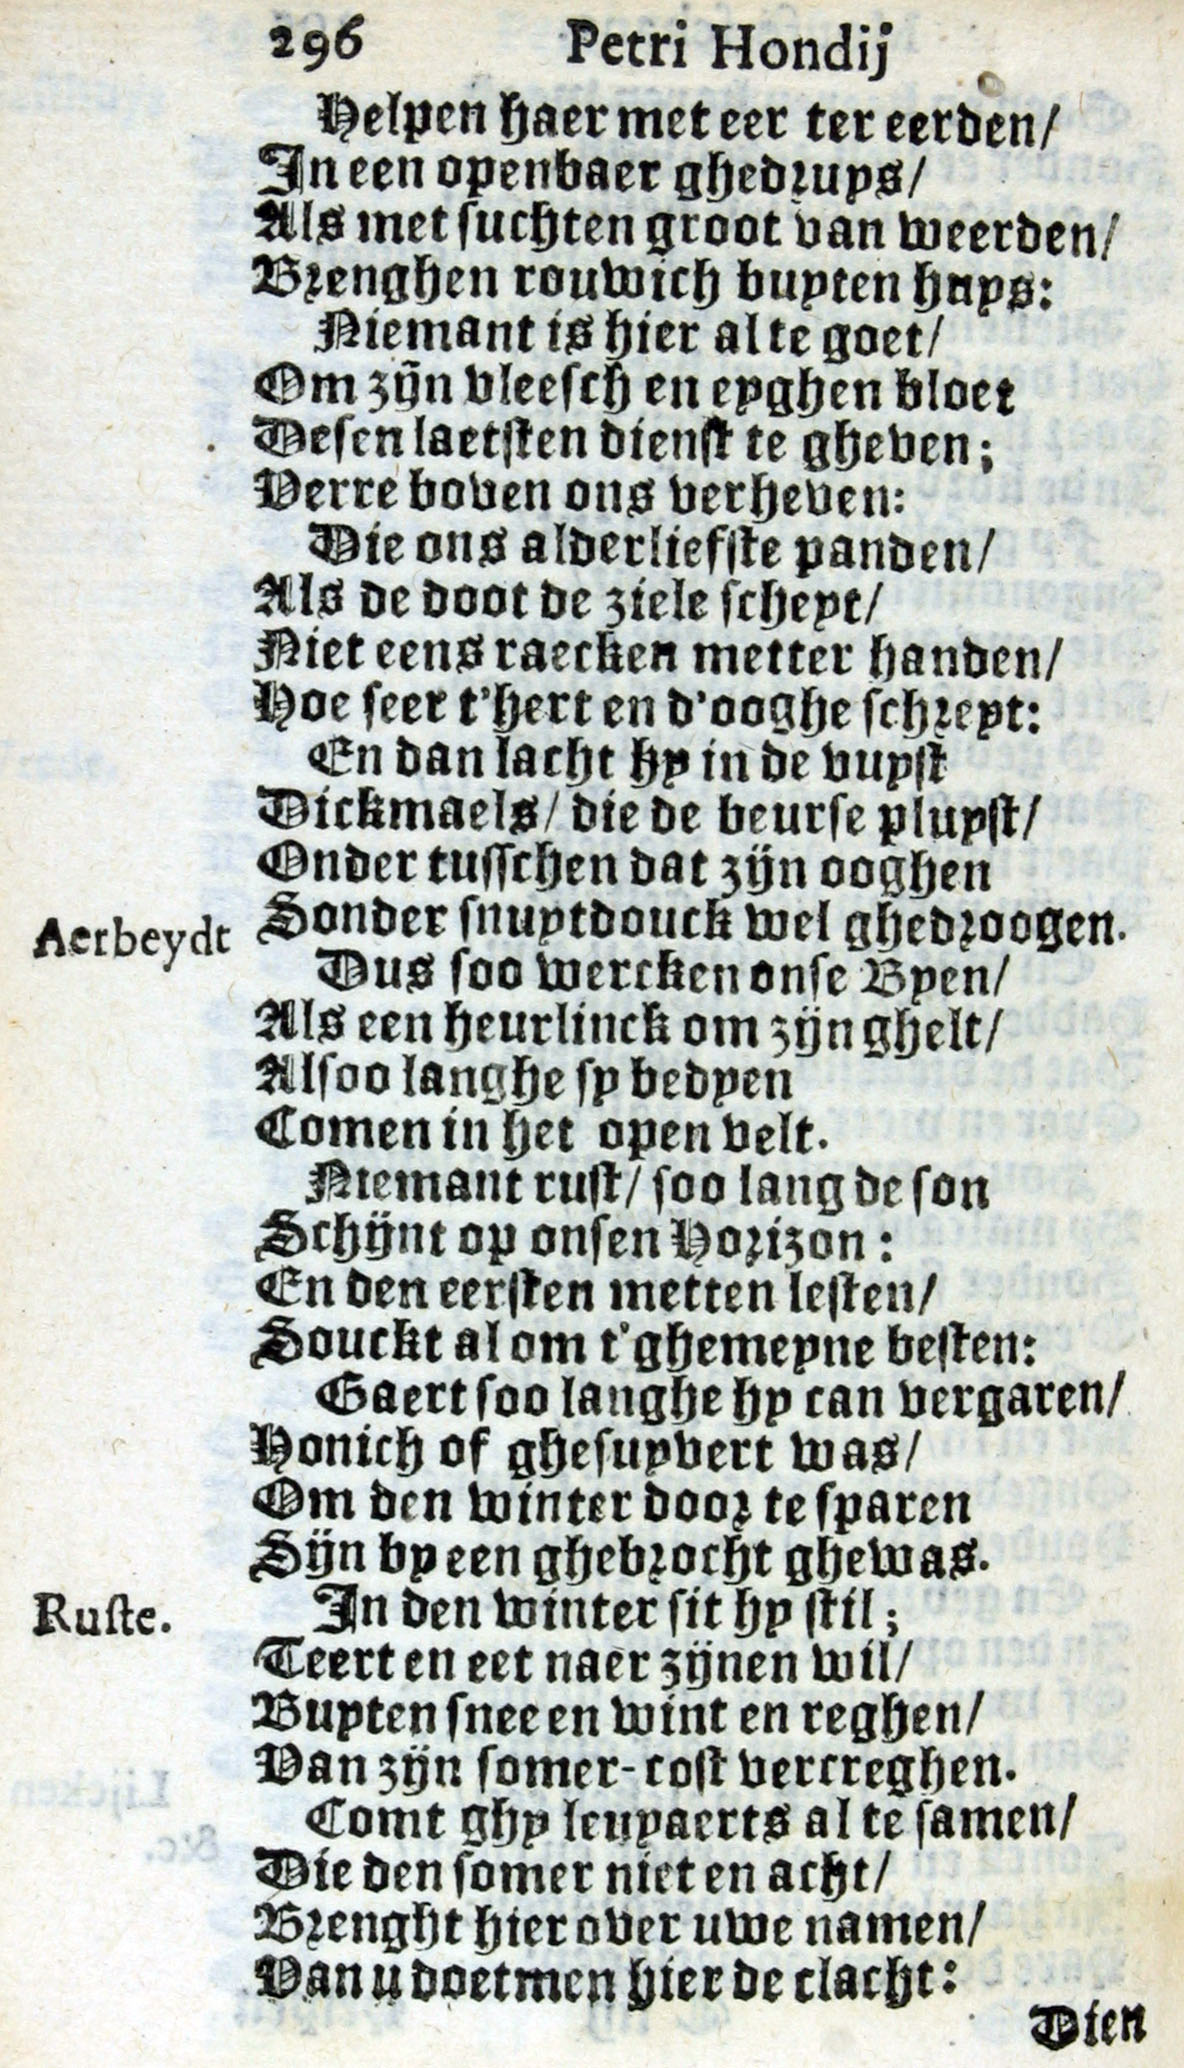 296 Petri Hondij
Helpen haer met eer ter eerden/
In een openbaer ghedruys/
Als met suchten groot van weerden/
Brenghen rouwich buyten huys:
Niemant is hier al te goet/
Om zijn vleesch en eyghen bloet
Desen laetsten dienst te gheven;
Verre boven ons verheven:
Die ons alderliefste panden/
Als de doot de ziele scheyt/
Niet eens raecken metter handen/
Hoe seer t'hert en d'ooghe schreyt:
En dan lacht hy in de vuyst
Dickmaels/ die de beurse pluyst/
Onder tusschen dat zijn ooghen
Sonder snuytdouck wel ghedroogen.
Aerbeydt
Dus soo wercken onse Byen/
Als een heurlinck om zijn ghelt/
Alsoo langhe sy bedyen
Comen in het open velt.
Niemant rust/ soo lang de son
Schijnt op onsen Horizon:
En den eersten metten lesten/
Souckt al om t'ghemeyne besten:
Gaert soo langhe hy can vergaren/
Honich of ghesuyvert was/
Om den winter door te sparen
Sijn by een ghebrocht ghewas.
Ruste.
In den winter sit hy stil;
Teert en eet naer zijnen wil/
Buyten snee en wint en reghen/
Van zijn somer-cost vercreghen.
Comt ghy leuyaerts al te samen/
Die den somer niet en acht/
Brenght hier over uwe namen/
Van u doetmen hier de clacht:
Dien